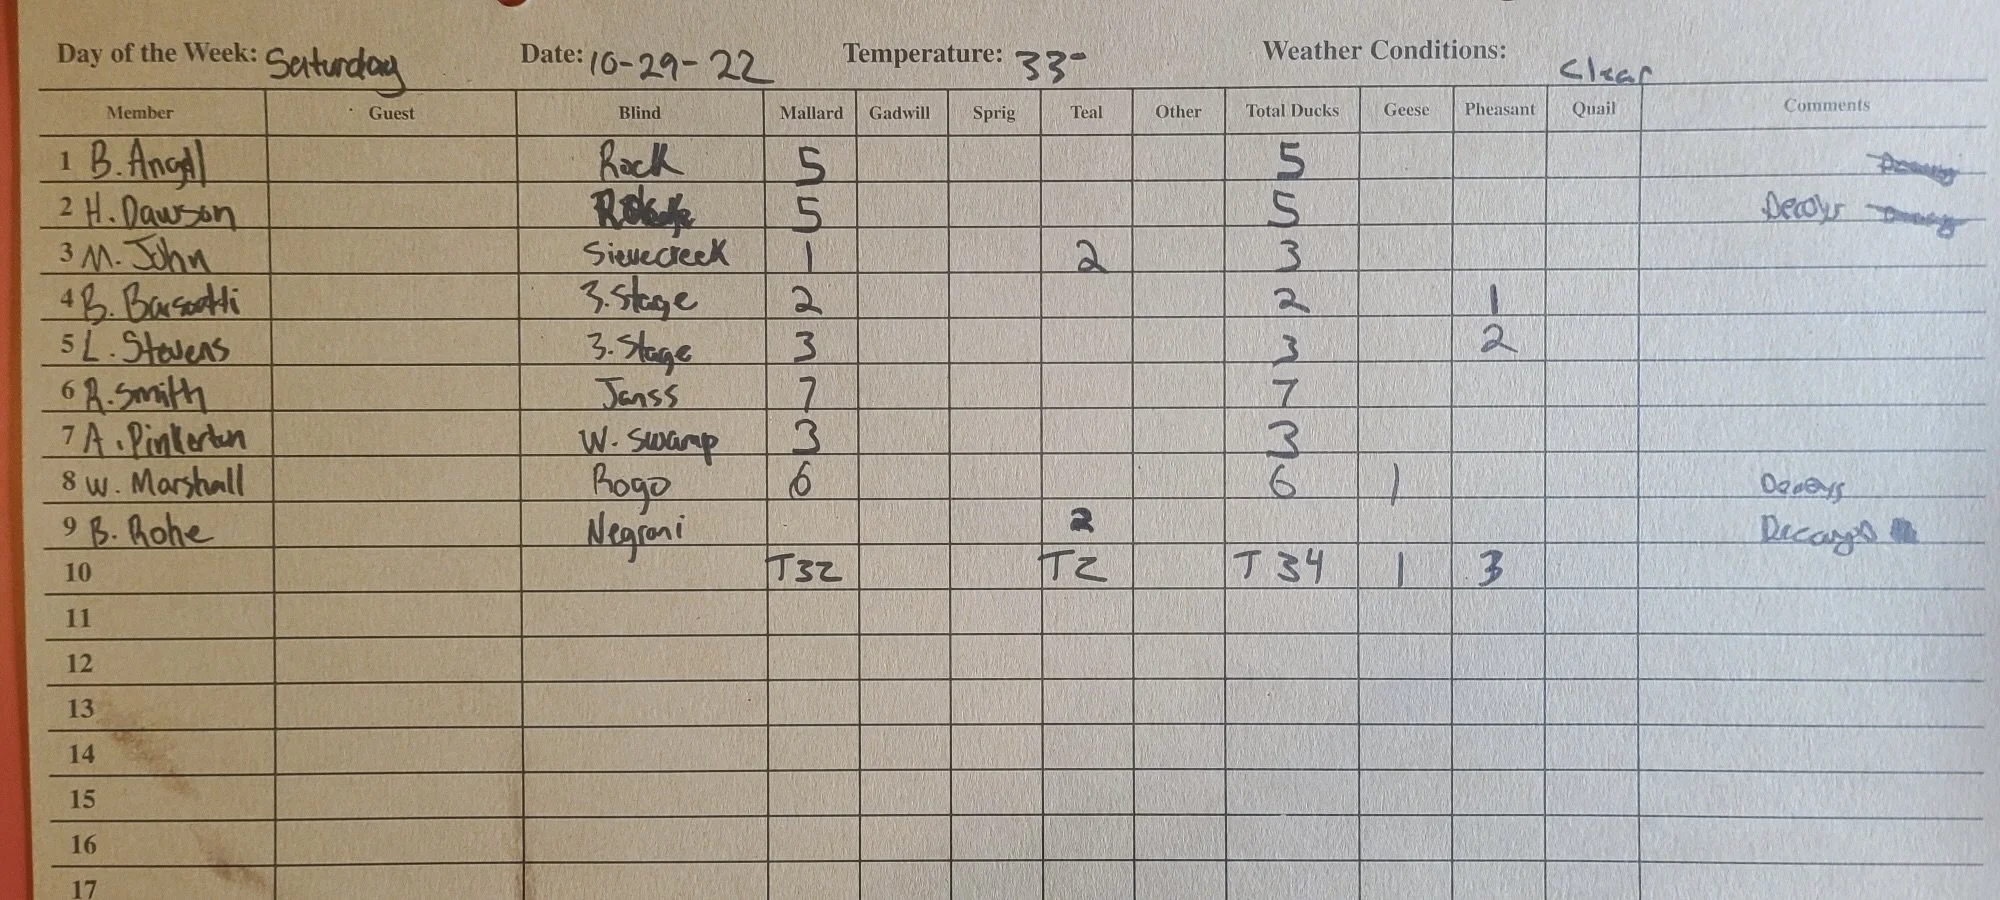 Day of the Week: Saturday Date: 10-29-22 Temperature: 33° Weather Conditions: Clear
Member Guest Blind Mallard Gadwill Sprig Teal Other Total Ducks Geese Pheasant Quail Comments
1 B. Angell Rock 5 5
2 H. Dawson 5 5 Decoys
3 M. John Sievecreek 1 2 3
4 B. Barsotti 3. Stage 2 2 1
5 L. Stevens 3. Stage 3 3 2
6 R. Smith Janss 7 7
7 A. Pinkerton W. Swamp 3 3
8 W. Marshall Rogo 6 6 1 Decoys
9 B. Rohe Negroni 2 Decoys
10 T32 T2 T 34 1 3
11
12
13
14
15
16
17